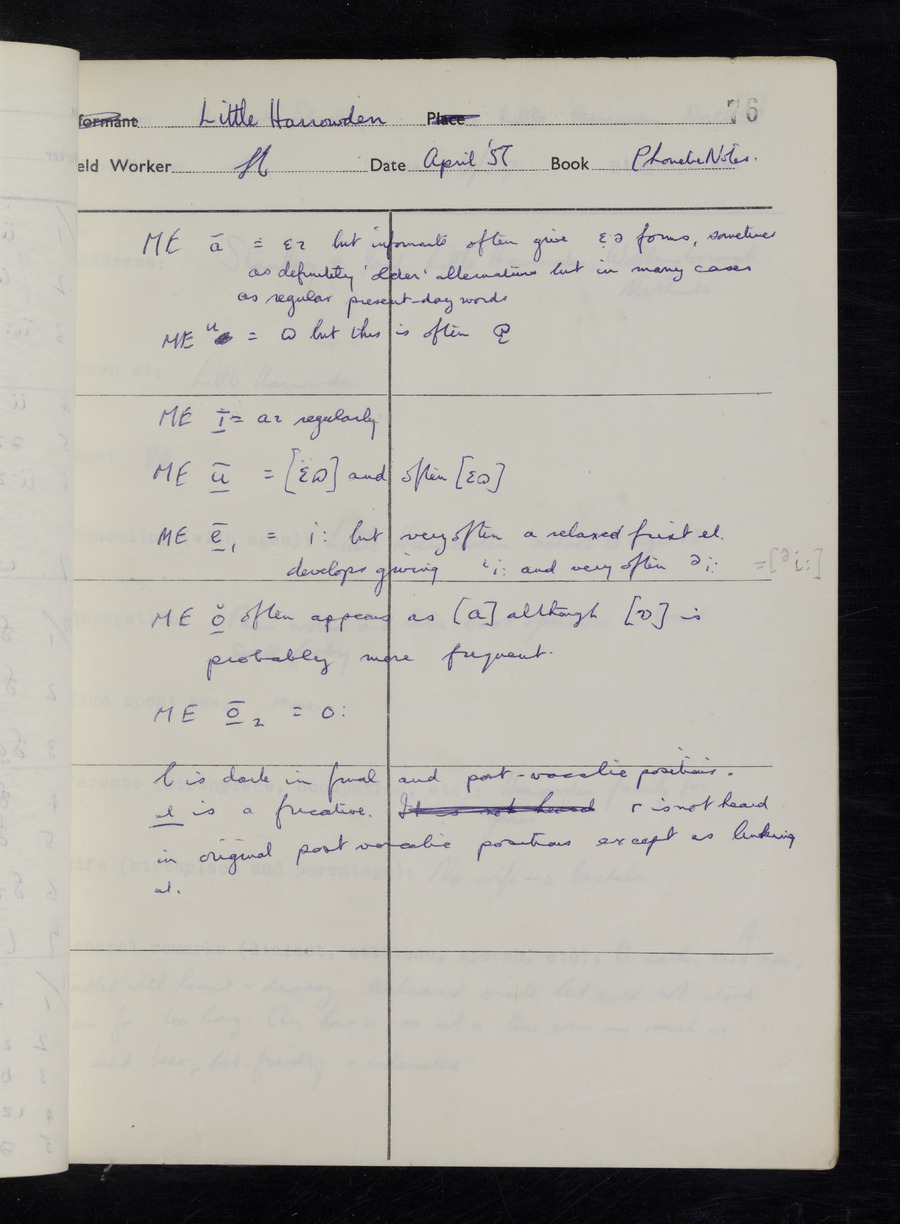 formant Little Harrowden Place 76
eld Worker Date April '57 Book Phonetic Notes.
ME ā = ɛɪ but informants often give ɛə forms, sometimes
as definitely 'older' alternatives but in many cases
as regular present-day words
ME u = ɷ but this is often
ME ī = aɪ regularly
ME ū = [ɛ̈ɷ] and often [ɛɷ]
ME ē₁ = i: but very often a relaxed first el.
develops giving ᶦi: and very often ᵊi: =[ᵊi:]
ME ŏ often appears as [ɑ] although [ɒ] is
probably more frequent.
ME ō₂ = o:
l is dark in final and post-vocalic positions.
ɹ is a fricative. It is not heard r is not heard
in original post vocalic positions except as linking
ɹ.